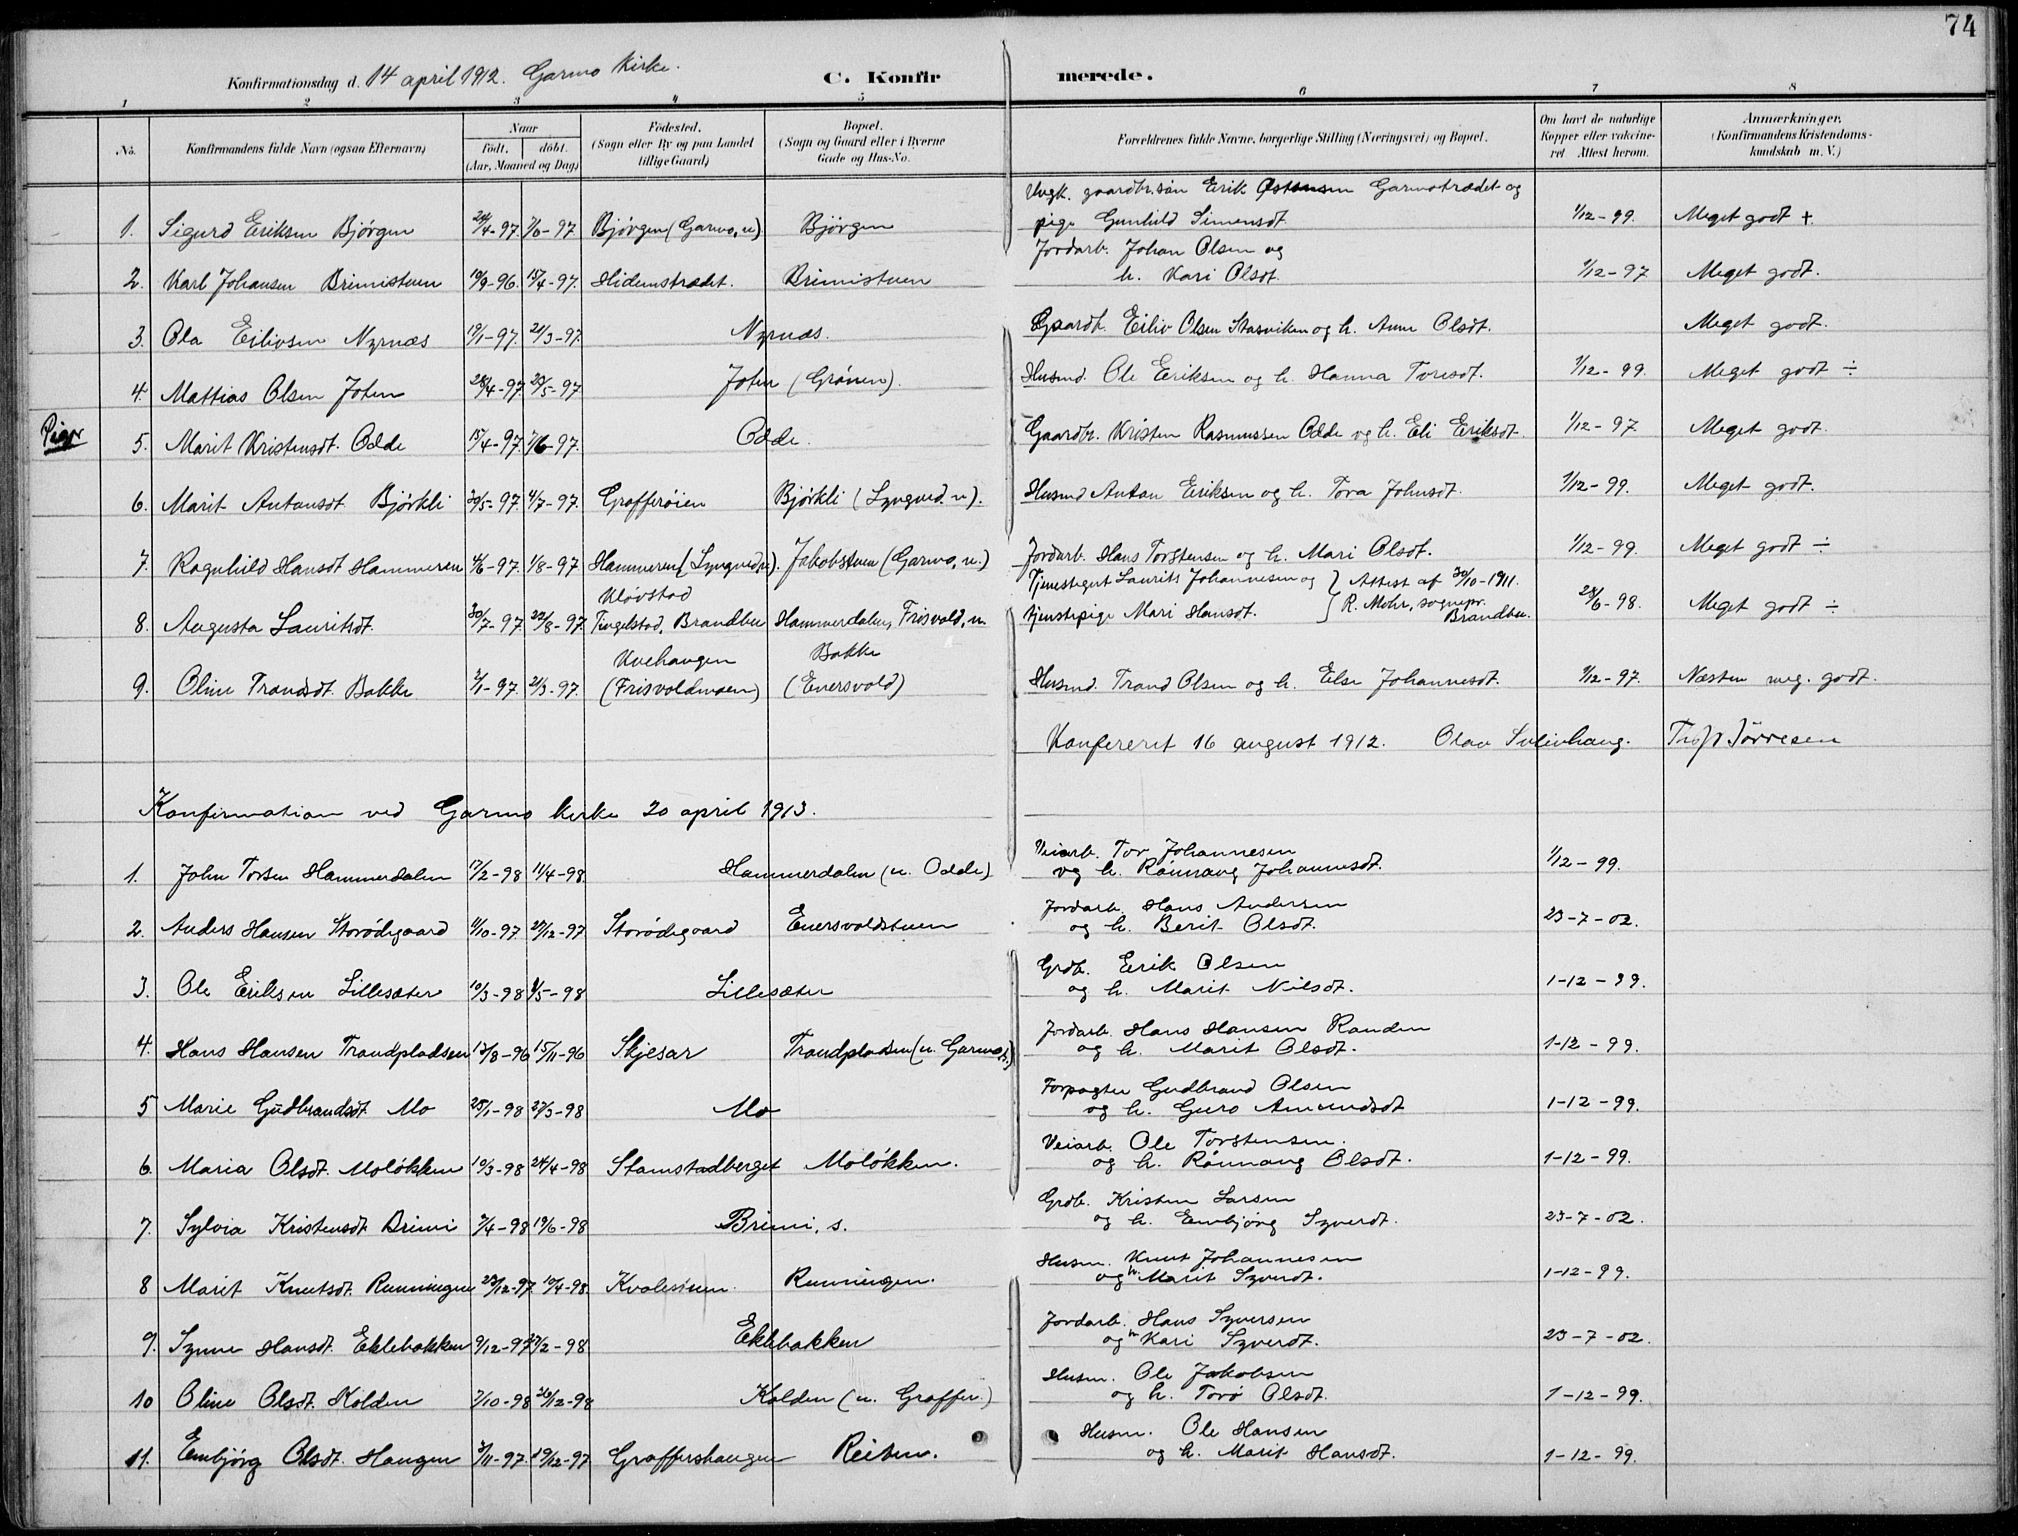 74
Konfirmationsdag d. 14 april 1912. Garmo Kirke.
C. Konfirmerede.
1 2 3 4 5 6 7 8
No.
Konfirmandens fulde Navn (ogsaa Efternavn)
Naar
født. døbt.
(Aar, Maaned og Dag)
Fødested.
(Sogn eller By og paa Landet
tillige Gaard)
Bopæl.
(Sogn og Gaard eller i Byerne
Gade og Hus-No.
Forældrenes fulde Navne, borgerlige Stilling (Næringsvei) og Bopæl.
Om havt de naturlige
Kopper eller vakcine-
ret Attest herom.
Anmærkninger.
(Konfirmandens Kristendoms-
kundskab m. V.)
Ungk. gaardbr.søn Erik Østensen Garmotrædet og
1. Sigurd Eriksen Bjørgen 24/4-97. 7/6-97 Bjørgen (Garmo, n) Bjørgen pige Gunhild Simensdt. 1/12-99. Meget godt +
Jordarb. Johan Olsen og
2. Karl Johansen Brimistuen 19/9-96. 15/4-97. Hidemstrædet. Brimistuen h. Kari Olsdt. 1/12-97 Meget godt.
3. Ola Eilivsen Nyrnæs 19/1-97. 21/3-97. Nyrnæs. Gaardb. Eiliv Olsen Stasviken og h. Anne Olsdt. Meget godt.
4. Mattias Olsen Joten 28/4-97. 29/5-97 Joten (Grønen). Husmd. Ole Eriksen og h. Hanna Toresdt. 1/12-99. Meget godt ÷
Piger
5. Marit Kristensdt. Odde 15/4-97. 7/6-97. Odde. Gaardbr. Kristen Rasmussen Odde og h. Eli Eriksdt. 1/12-97. Meget godt.
6. Marit Antonsdt. Bjørkli 30/5-97. 4/7-97. Grafferøien Bjørkli (Lyngved. n). Husmd Anton Eriksen og h. Tora Johnsdt. 1/12-99. Meget godt.
7. Ragnhild Hansdt Hammeren 4/6-97. 1/8-97 Hammeren (Lyngved, n). Jakobstuen (Garmo, n.) Jordarb. Hans Torstensen og h. Mari Olsdt. 1/12-99. Meget godt ÷
Kløvstad Tjenestegut Laurits Johannesen og } Attest af 30/10-1911.
8. Augusta Lauritsdt. 30/7-97. 22/8-97. Tingelstad, Brandbu Hammerdalen, Frisvold, n. tjenestepige Mari Hansdt. } R. Mohr, sognepr. 28/6-98. Meget godt ÷
Brandbu.
Kvehaugen Bakke
9. Oline Trandsdt. Bakke 2/1-97. 21/3-97. (Frisvoldmoen) (Enersvold) Husmd. Trand Olsen og h. Else Johannesdt. 1/12-97. Næsten meg. godt.
Konfereret 16 august 1912. Olav Sulinhaug. Jørresen
Konfirmation ved Garmo Kirke 20 april 1913.
Veiarb. Tor Johannesen
1. John Torsen Hammerdalen 17/2-98 11/4-98 Hammerdalen (u. Odde) og h. Rønnaug Johannesdt. 1/12-99.
Jordarb. Hans Andersen
2. Anders Hansen Storødegaard 11/10-97 27/12-97 Storødegaard Enersvoldstuen og h. Berit Olsdt. 23-7-02.
Grdb. Erik Olsen
3. Ole Eriksen Lillesæter 10/3-98 8/5-98 Lillesæter og h. Marit Nilsdt. 1-12-99.
Jordarb. Hans Hansen Randen
4. Hans Hansen Trandpladsen 17/8-96 15/11-96 Skjesar Trandpladsen (u. Garmo, n.) og h. Marit Olsdt. 1-12-99.
Forpagter Gudbrand Olsen
5 Marie Gudbrandsdt. Mo 25/1-98 27/3-98 Mo og h. Guro Amundsdt 1-12-99.
Veiarb. Ole Torstensen.
6. Maria Olsdt. Moløkken 10/3-98 24/4-98 Stamstadberget Moløkken. og h. Rønnaug Olsdt. 1-12-99.
Grdb. Kristen Larsen
7. Sylvia Kristensdt. Brimi 7/4-98 19/6-98 Brimi, s. og h. Embjørg Syverdt. 23-7-02.
Husm. Knut Johannesen
8 Marit Knutsdt. Runningen 23/12-97 10/4-98. Kvalestuen. Runningen. og h. Marit Syverdt. 1-12-99.
Jordarb. Hans Syversen
9. Synne Hansdt. Eklebakken 9/12-97 27/2-98 Eklebakken og h. Kari Syverdt. 23-7-02.
Husm. Ole Jakobsen
10 Oline Olsdt. Kolden 7/10-98 26/12-98 Kolden (u. Graffer.) og h. Torø Olsdt. 1-12-99.
Husm. Ole Hansen
11. Embjørg Olsdt. Haugen 7/11-97. 19/12-97 Graffershaugen Reiten. og h. Marit Hansdt. 1-12-99.